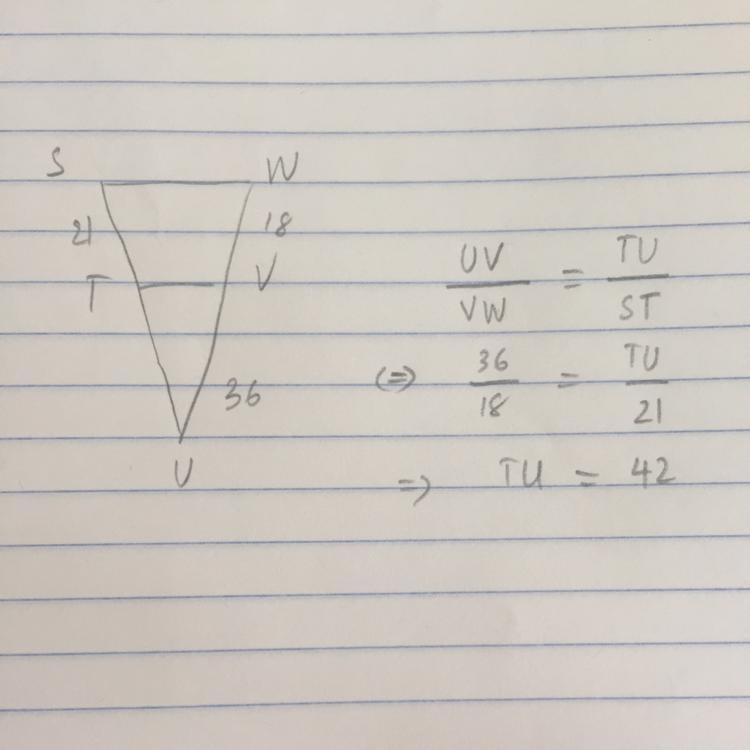 S W
21 18
T V
36
U
UV/VW = TU/ST
⇔ 36/18 = TU/21
⇒ TU = 42